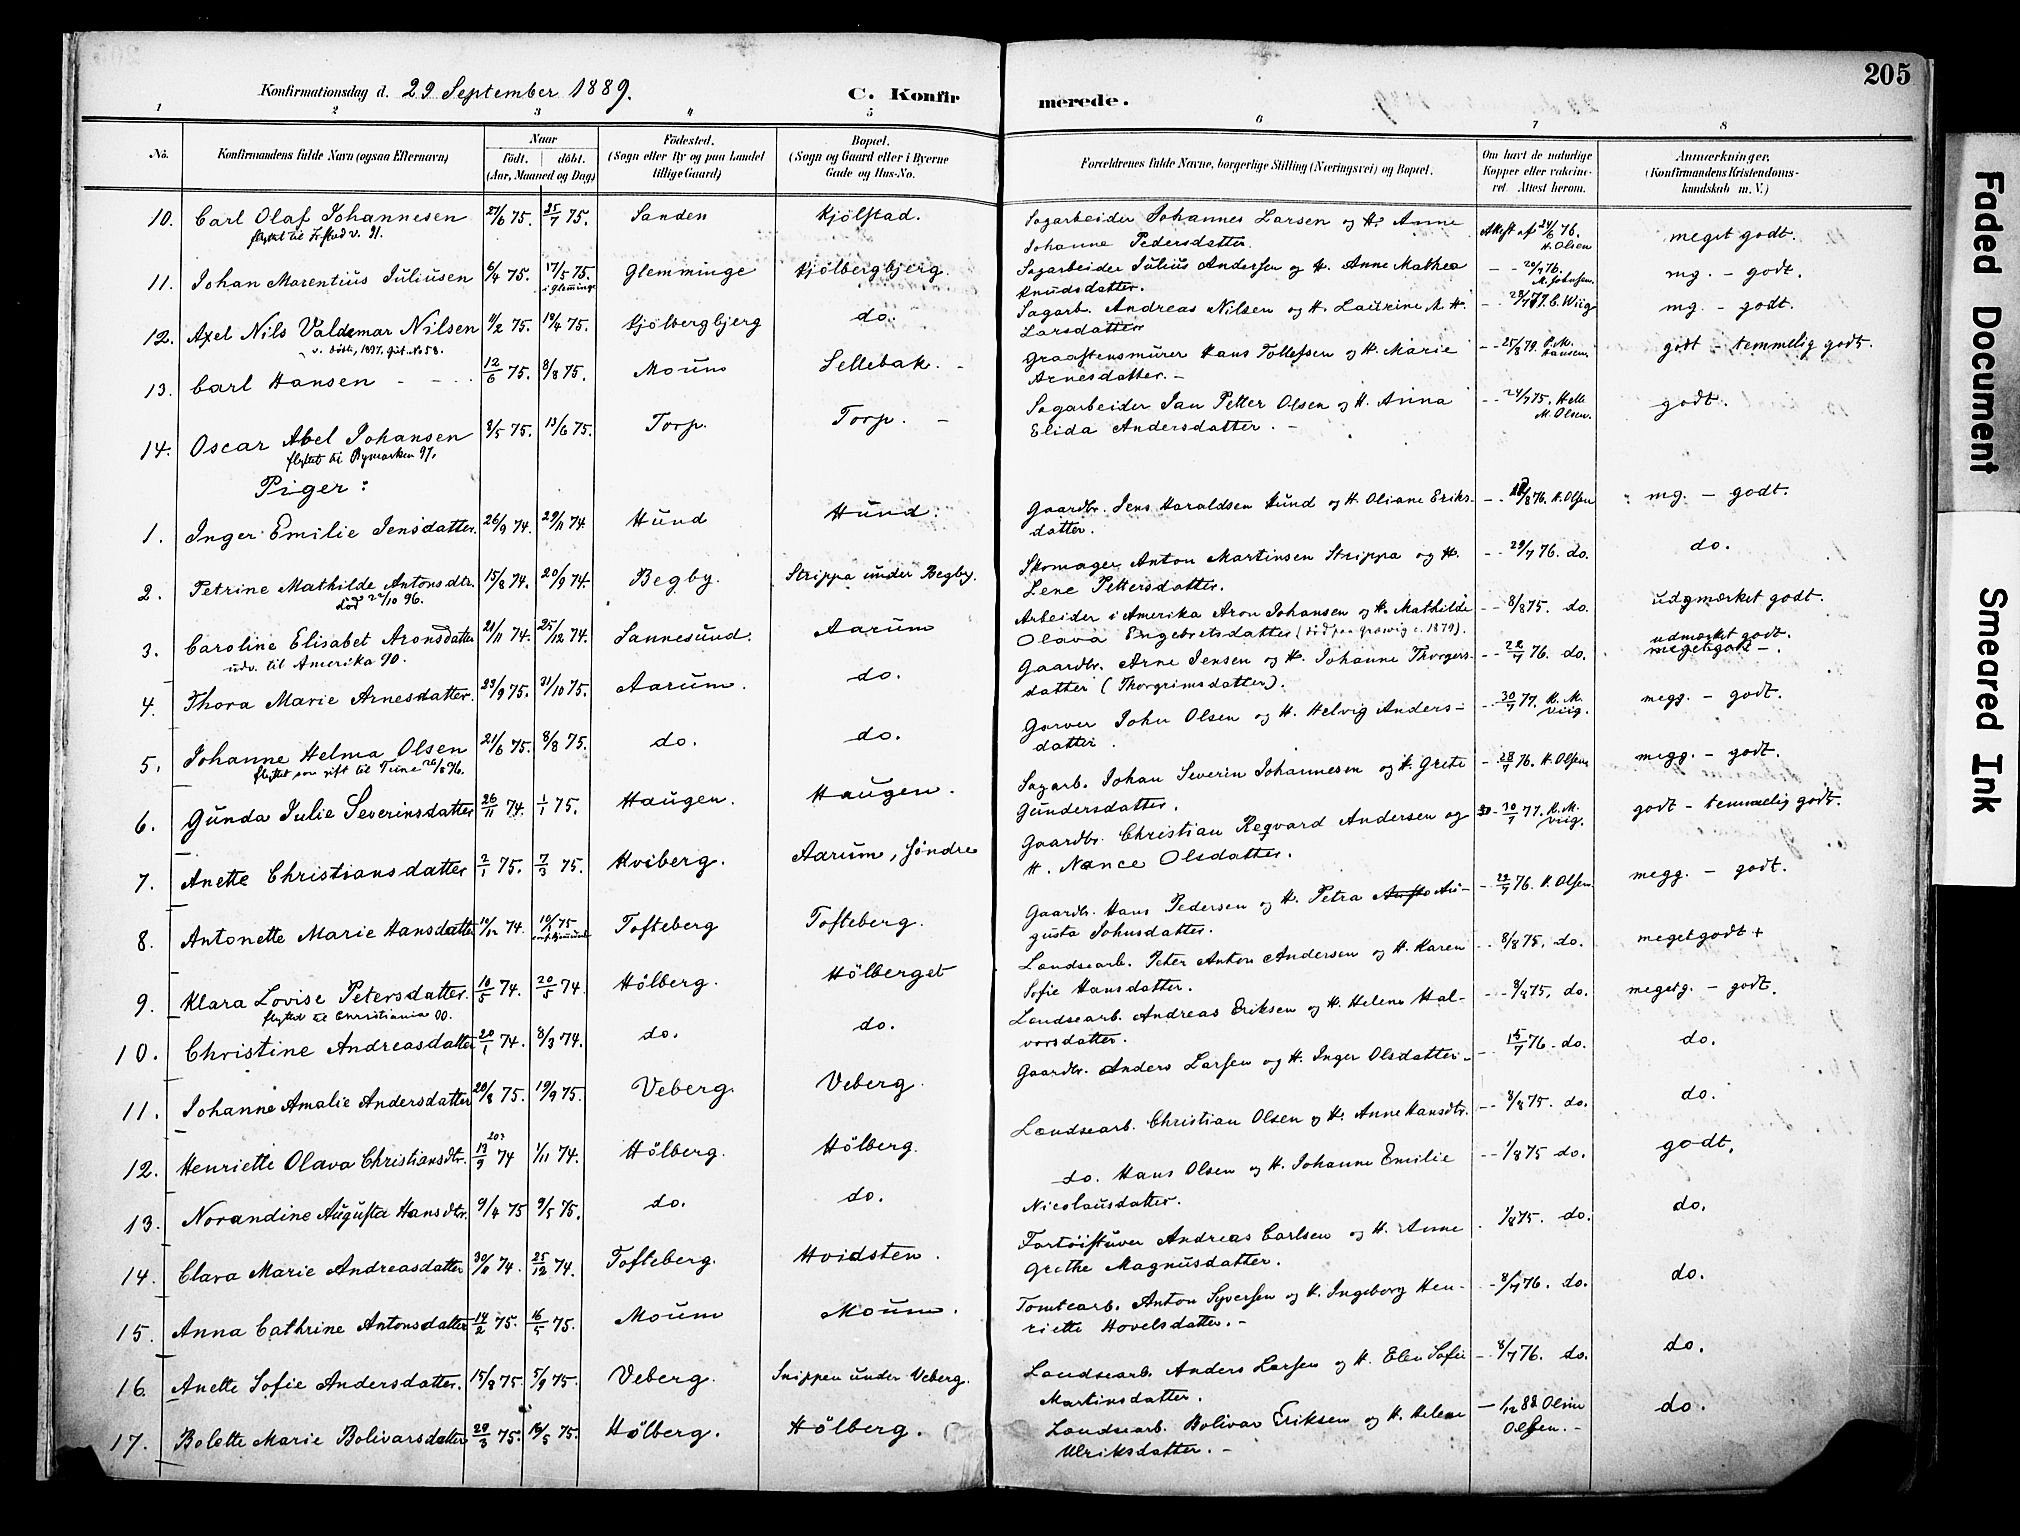 205
Konfirmationsdag d. 29 September 1889.
C. Konfirmerede.
1 2 3 4 5 6 7 8
No. Konfirmandens fulde Navn (ogsaa Efternavn) Naar født. døbt. (Aar, Maaned og Dag) Fødested. (Sogn eller By og paa Landet tillige Gaard) Bopæl. (Sogn og Gaard eller i Byerne Gade og Hus-No. Forældrenes fulde Navne, borgerlige Stilling (Næringsvei) og Bopæl. Om havt de naturlige Kopper eller vakcineret. Attest herom. Anmærkninger. (Konfirmandens Kristendomskundskab m. V.)
10. Carl Olaf Johannesen 27/6 75. 25/7 75. Sanden Kjølstad. Sagarbeider Johannes Larsen og H. Anne Johanne Pedersdatter. Attest af 24/6 76. H. Olsen meget godt.
11. Johan Marentius Juliusen 6/4 75. 17/5 75. i Glemminge Glemminge Kjølbergbjerg. Sagarbeider Julius Andersen og H. Anne Mathea Knudsdatter. - - 20/7 76. mg. - godt.
12. Axel Nils Valdemar Nilsen 11/2 75. 19/4 75. Kjølbergbjerg do. Sagarb. Andreas Nilsen og H. Laurine A. H. Larsdatter mg. - godt.
13. Carl Hansen 12/6 75. 8/8 75. Moum Sellebak. Graastensmurer Hans Tollefsen og H. Marie Arnesdatter. - - - 25/8 79. P. M. Hansen godt - temmelig godt.
14. Oscar Abel Johansen 8/5 75. 13/6 75. Torp. Torp. Sagarbeider Jan Petter Olsen og H. Anna Elida Andersdatter. - - - 24/7 75. M. Olsen. godt.
flyttet til Rymarken 97.
Piger:
1. Inger Emilie Jensdatter. 26/9 74. 29/11 74 Hund Hund. Gaardbr. Jens Haraldsen Hund og H. Oliane Eriksdatter. H. Olsen mg. - godt.
2. Petrine Mathilde Antonsdtr. 15/8 74. 20/9 74. Begby. Strippa under Begby. Skomager Anton Martinsen Strippa og H. Lene Pettersdatter. - - 29/7 76. do. do.
død 22/10 96.
3. Caroline Elisabet Aronsdatter 21/11 74. 25/12 74. Sannesund. Aarum Arbeider i Amerika Aron Johansen og H. Mathilde Olava Engebretsdatter - - 8/8 75. do. udmærket godt.
udv. til Amerika 90.
4. Thora Marie Arnesdatter. 23/9 75. 31/10 75. Aarum. do. Gaardbr. Arne Jensen og H. Johanne Thorgersdatter (Thorgrimsdatter). - - 22/7 76. do. udmærket godt.
5. Johanne Helma Olsen 21/6 75. 8/8 75. do. do. Garver John Olsen og H. Helvig Andersdatter. - - 30/7 77. megg. - godt.
flyttet som gift til Tune 26/8 96.
6. Gunda Julie Severinsdatter 26/11 74. 1/1 75. Haugen. Haugen. Sagarb. Johan Severin Johannesen og H. Grete Gundersdatter. - 28/7 76. H. Olsen megg. - godt.
7. Anette Christiansdatter 2/1 75. 7/3 75. Hviberg. Aarum, søndre Gaardbr. Christian Regvard Andersen og H. Nance Olsdatter. - 30/7 77. godt - temmelig godt.
8. Antonette Marie Hansdatter 10/12 74. Tofteberg Tofteberg. Gaardbr. Hans Pedersen og H. Petra Augusta Johnsdatter. - 22/7 76. H. Olsen. megg. - godt.
9. Klara Lovise Petersdatter. 10/5 74. 20/5 74. Hölberg. Hölberget Landsearb. Peter Anton Andersen og H. Karen Sofie Hansdatter. - - 8/8 75. do. meget godt +
flyttet til Christiania 00.
10. Christine Andreasdatter 20/1 74. 8/3 74. do. do. Landsearb. Andreas Eriksen og H. Helene Halvorsdatter. - - 8/8 75. do. megetg. - godt.
11. Johanne Amalie Andersdatter 20/8 75. 19/9 75. Veberg. Veberg. Gaardbr. Anders Larsen og H. Inger Olsdatter. - 15/7 76. do. do.
12. Henriette Olava Christiansdtr. 13/9 74 1/11 74. Hölberg. Hölberg. Landsearb. Christian Olsen og H. Anne Hansdtr. - - 8/8 75. do. do.
13. Norandine Augusta Hansdtr. 9/4 75 9/5 75. do. do. do. Hans Olsen og H. Johanne Emilie Nicolausdatter. - - 1/8 75 do. godt.
14. Clara Marie Andreasdatter 30/11 74. 25/12 74. Tofteberg. Hvidsten. Andreas Carlsen og H. Anne Grethe Magnusdatter. 1/8 75. do. do.
15. Anna Cathrine Antonsdatter 14/2 75. 16/5 75. Moum Moum. Tomtearb. Anton Syversen og H. Ingeborg Henriette Hovelsdatter. - - 8/7 76. do. do.
16. Anette Sofie Andersdatter. 15/8 75 5/9 75. Veberg. Snippen under Veberg. Landsearb. Anders Larsen og H. Elen Sofie Martinsdatter. - 8/7 76. do. do.
17. Bolette Marie Bolivarsdatter 29/3 75. 16/5 75. Hölberg. Hölberg. Landsearb. Bolivar Eriksen og H. Helene Ulriksdatter. - Olsen. - do.
Faded Document
Smeared Ink